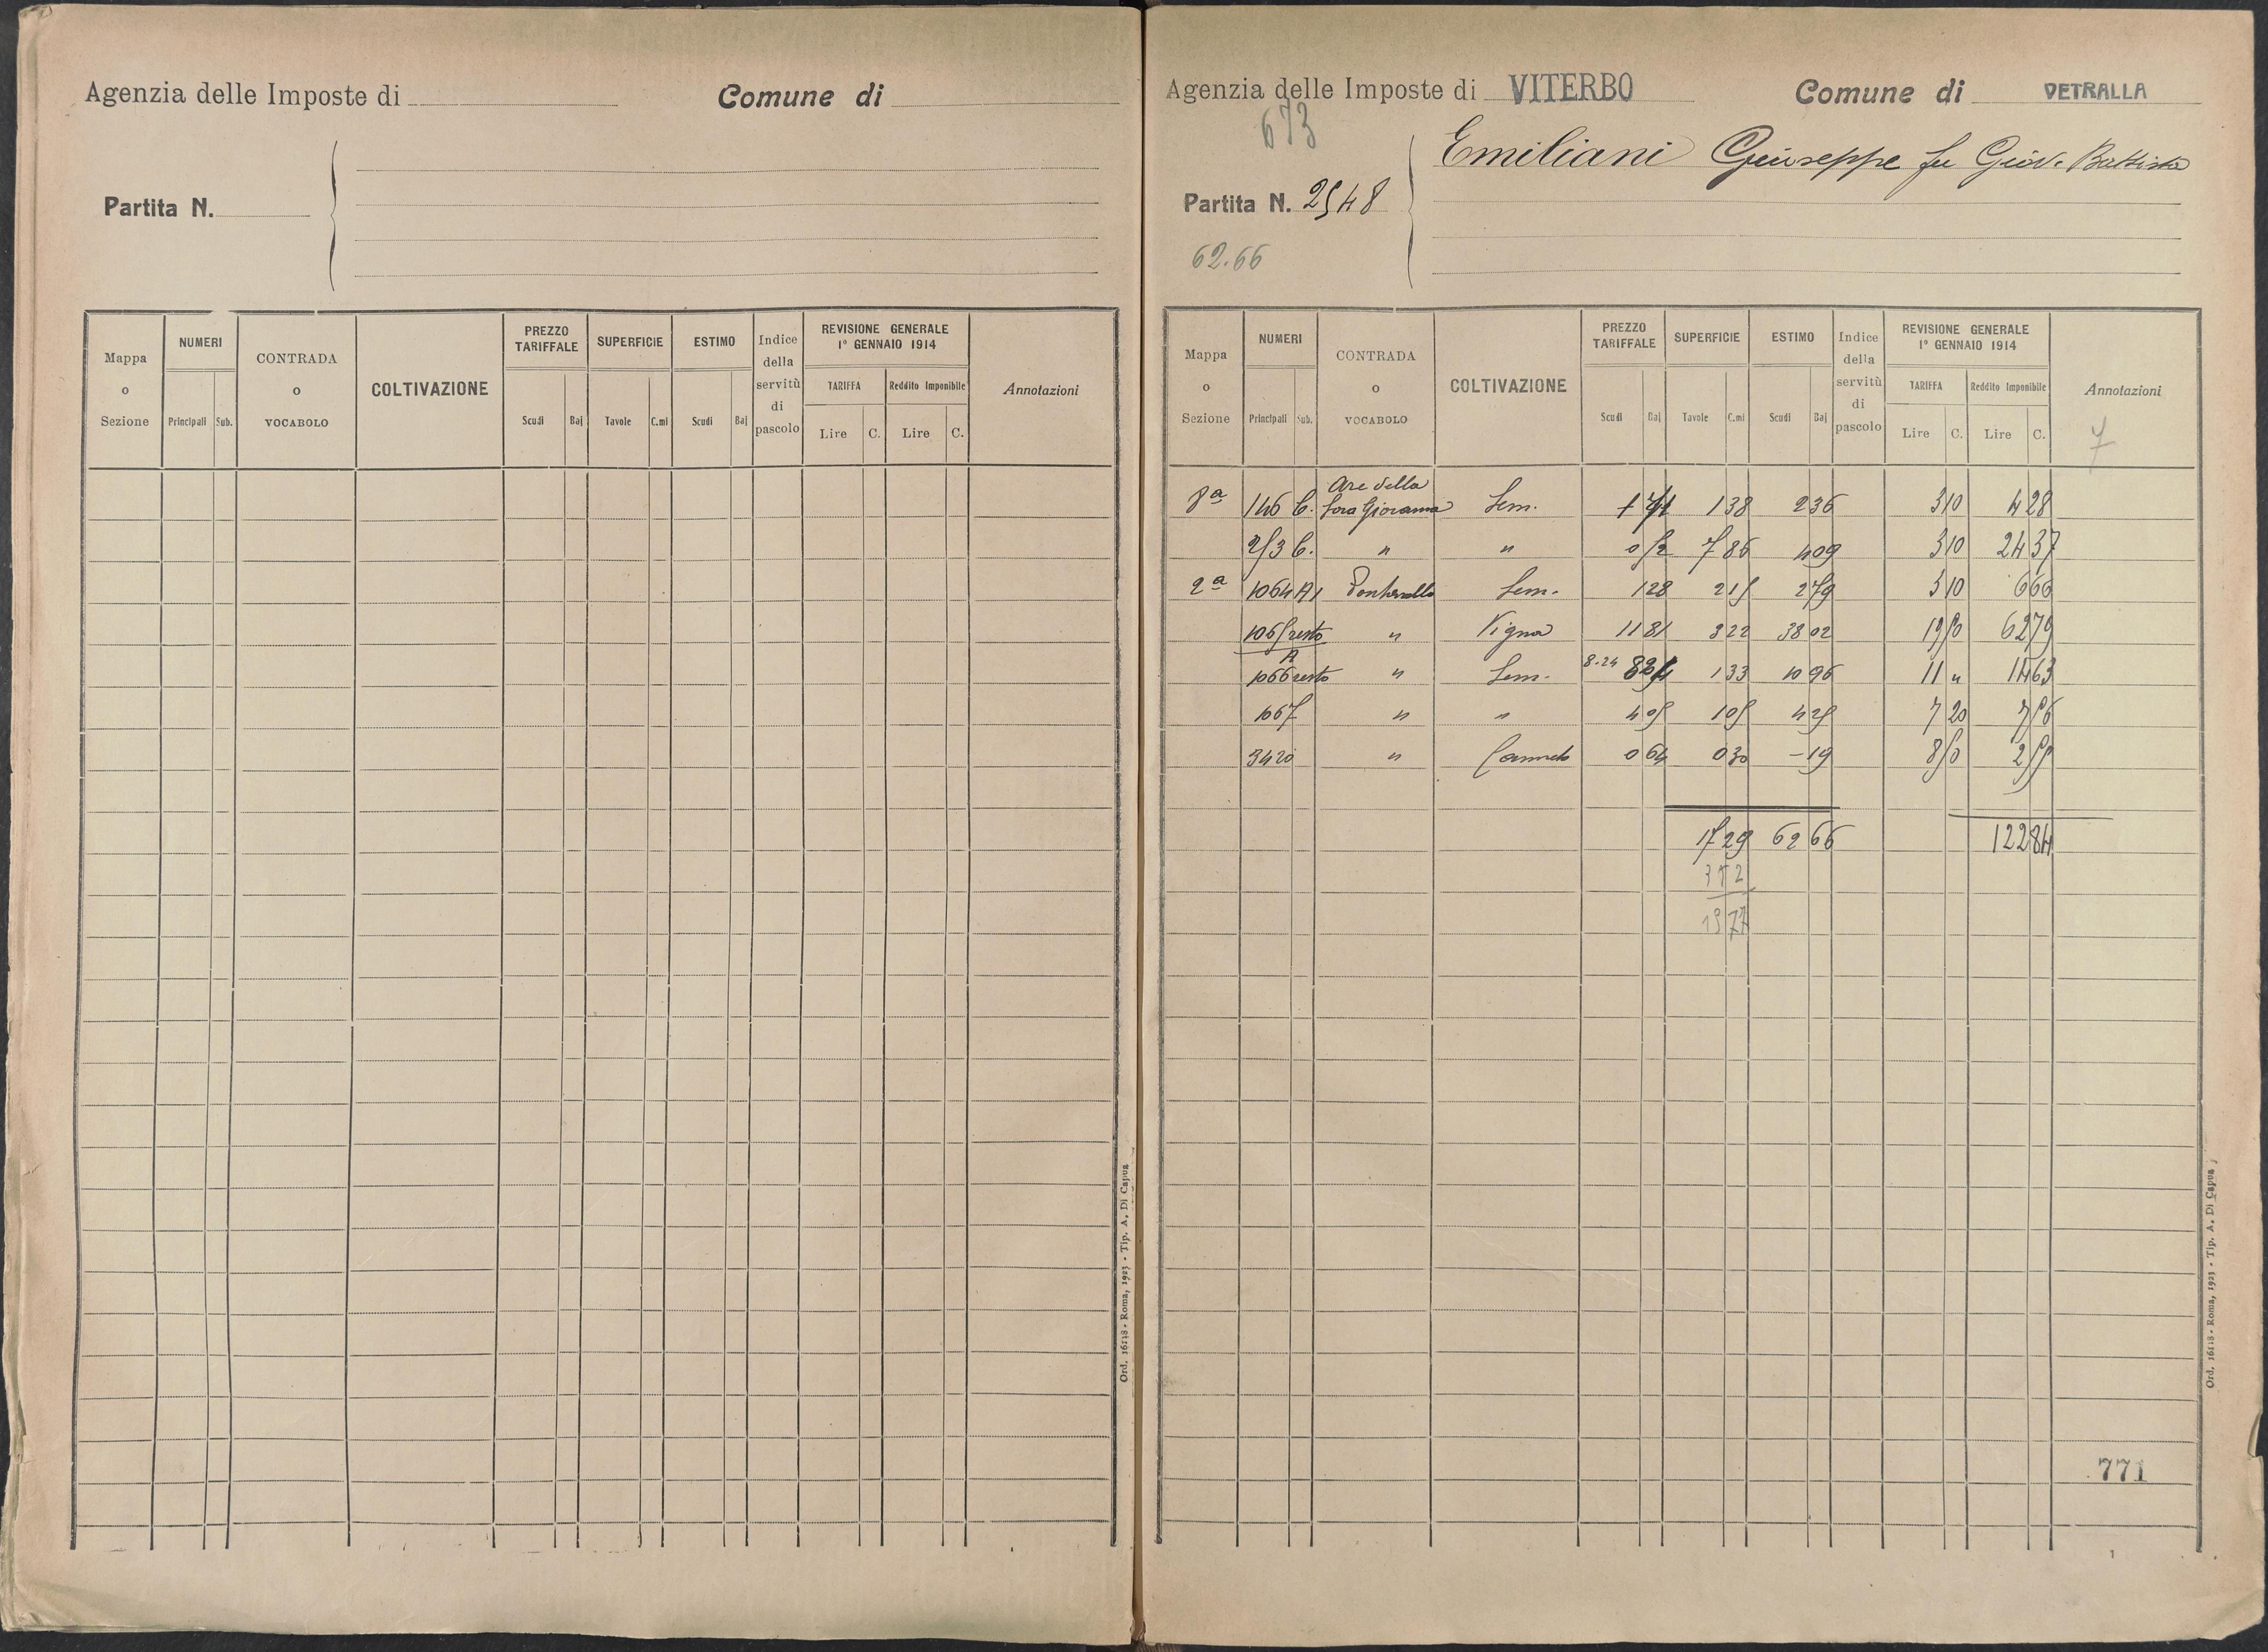 Agenzia delle Imposte di
Comune di
Partita N.
Mappa o Sezione
NUMERI
Principali Sub.
CONTRADA o VOCABOLO
COLTIVAZIONE
PREZZO TARIFFALE
Scudi Baj
SUPERFICIE
Tavole C.mi
ESTIMO
Scudi Baj
Indice della servitù di pascolo
REVISIONE GENERALE 1° GENNAIO 1914
TARIFFA Reddito Imponibile
Lire C. Lire C.
Annotazioni
Ord. 16118 - Roma, 1923 - Tip. A. Di Capua
Agenzia delle Imposte di VITERBO
Comune di VETRALLA
673
Emiliani Giuseppe fu Giov. Battista
Partita N. 2548
62.66
Mappa o Sezione
NUMERI
Principali Sub.
CONTRADA o VOCABOLO
COLTIVAZIONE
PREZZO TARIFFALE
Scudi Baj
SUPERFICIE
Tavole C.mi
ESTIMO
Scudi Baj
Indice della servitù di pascolo
REVISIONE GENERALE 1° GENNAIO 1914
TARIFFA Reddito Imponibile
Lire C. Lire C.
Annotazioni
7
8a 146 b. Are della Sora Giovanna Sem. 1 71 1 38 2 36 3 10 4 28
253 b. " " 0 52 7 86 4 09 3 10 24 37
2a 1064 A1 Sem. 1 28 2 15 2 79 3 10 6 66
1065 resto A " Vigna 11 81 3 22 38 02 19 50 62 79
1066 resto " Sem. 8.24 1 33 10 96 11 " 14 63
1067 " " 4 05 1 05 4 25 7 20 7 56
3420 " Canneto 0 64 0 30 - 19 8 50 2 55
17 29 62 66 122 84
19 77
771
Ord. 16118 - Roma, 1923 - Tip. A. Di Capua